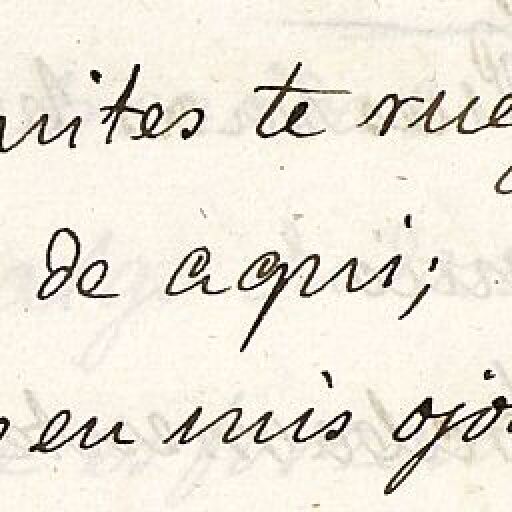 mites te rueg
de aqui;
en mis ojos